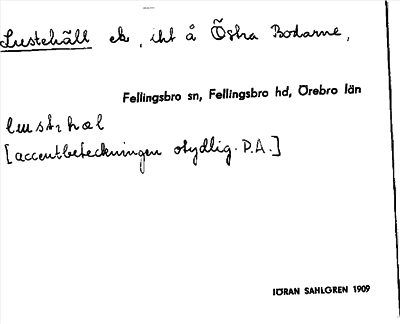 Lustehäll ek, iht å Östra Bodarne,
Fellingsbro sn, Fellingsbro hd, Örebro län
[accentbeteckningen otydlig. D.A.]
IÖRAN SAHLGREN 1909